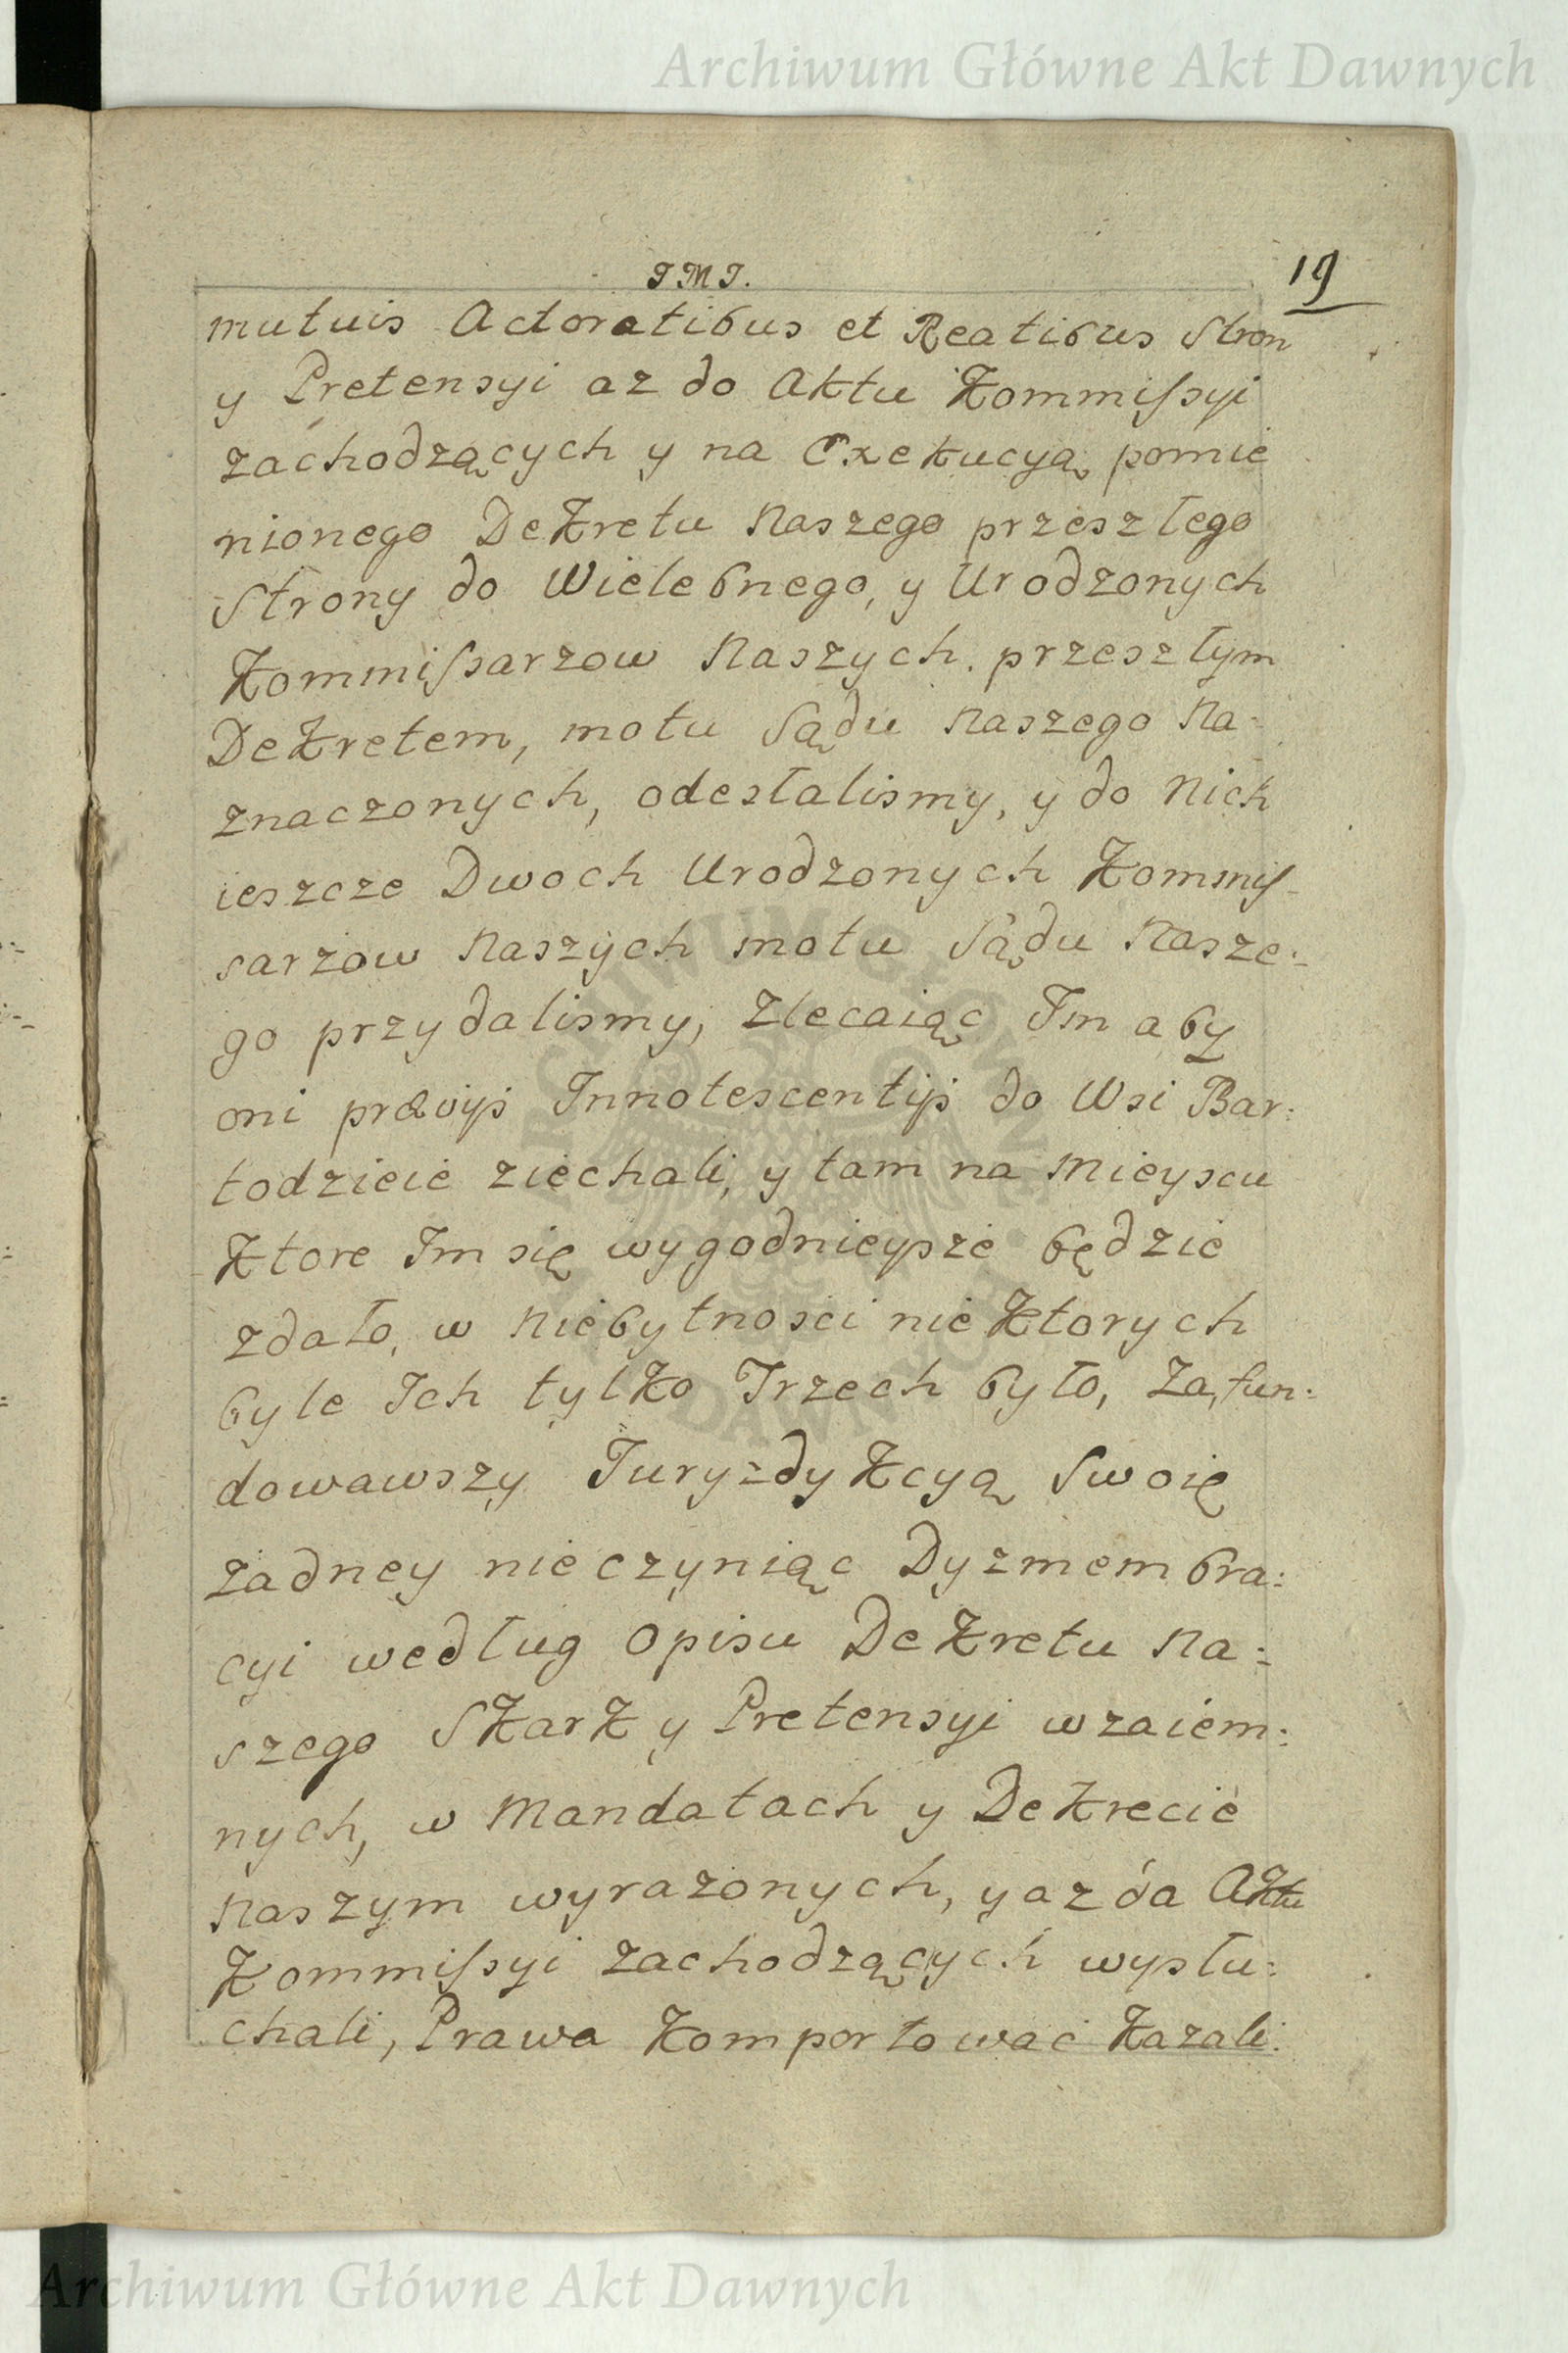 Archiwum Główne Akt Dawnych
J M J.
19
mutuis Actoratibus et Reatibus Stron
y Pretensyi az do Aktu Kommissyi
zachodzących y na Exekucyą pomie
nionego Dekretu Naszego przeszłego
Strony do Wielebnego, y Urodzonych
Kommissarzow Naszych. przeszłym
Dekretem, motu Sądu Naszego Na-
znaczonych, odesłalismy, y do Nich
ieszcze Dwoch Urodzonych Kommis-
sarzow Naszych motu Sądu Nasze:
go przydalismy, Zlecaiąc Im aby
oni prævijs Innotescentijs do Wsi Bar:
todzieie ziechali, y tam na Mieyscu
Ktore Im się wygodnieysze będzie
zdało, w Niebytnosci nie Ktorych
byle Ich tylko Trzech było, Zafun:
dowawszy Juryzdykcyą Swoię
żadney nie czyniąc Dyzmembra:
cyi według Opisu Dekretu Na:
szego Skark y Pretensyi wzaiem:
nych, w Mandatach y Dekrecie
Naszym wyrazonych, y az da Aktu
Kommissyi zachodzących wysłu:
chali, Prawa Komportowac Kazali.
Archiwum Główne Akt Dawnych